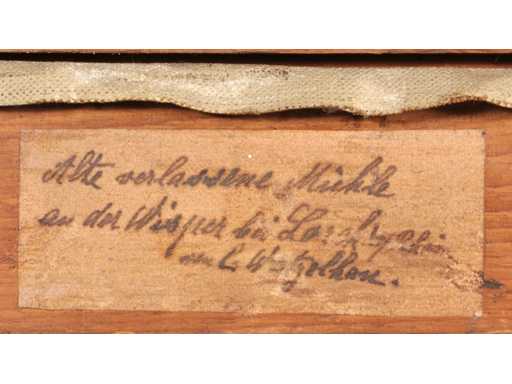 Alte verlassene Mühle
an der Wisper bei Lorch
von C.